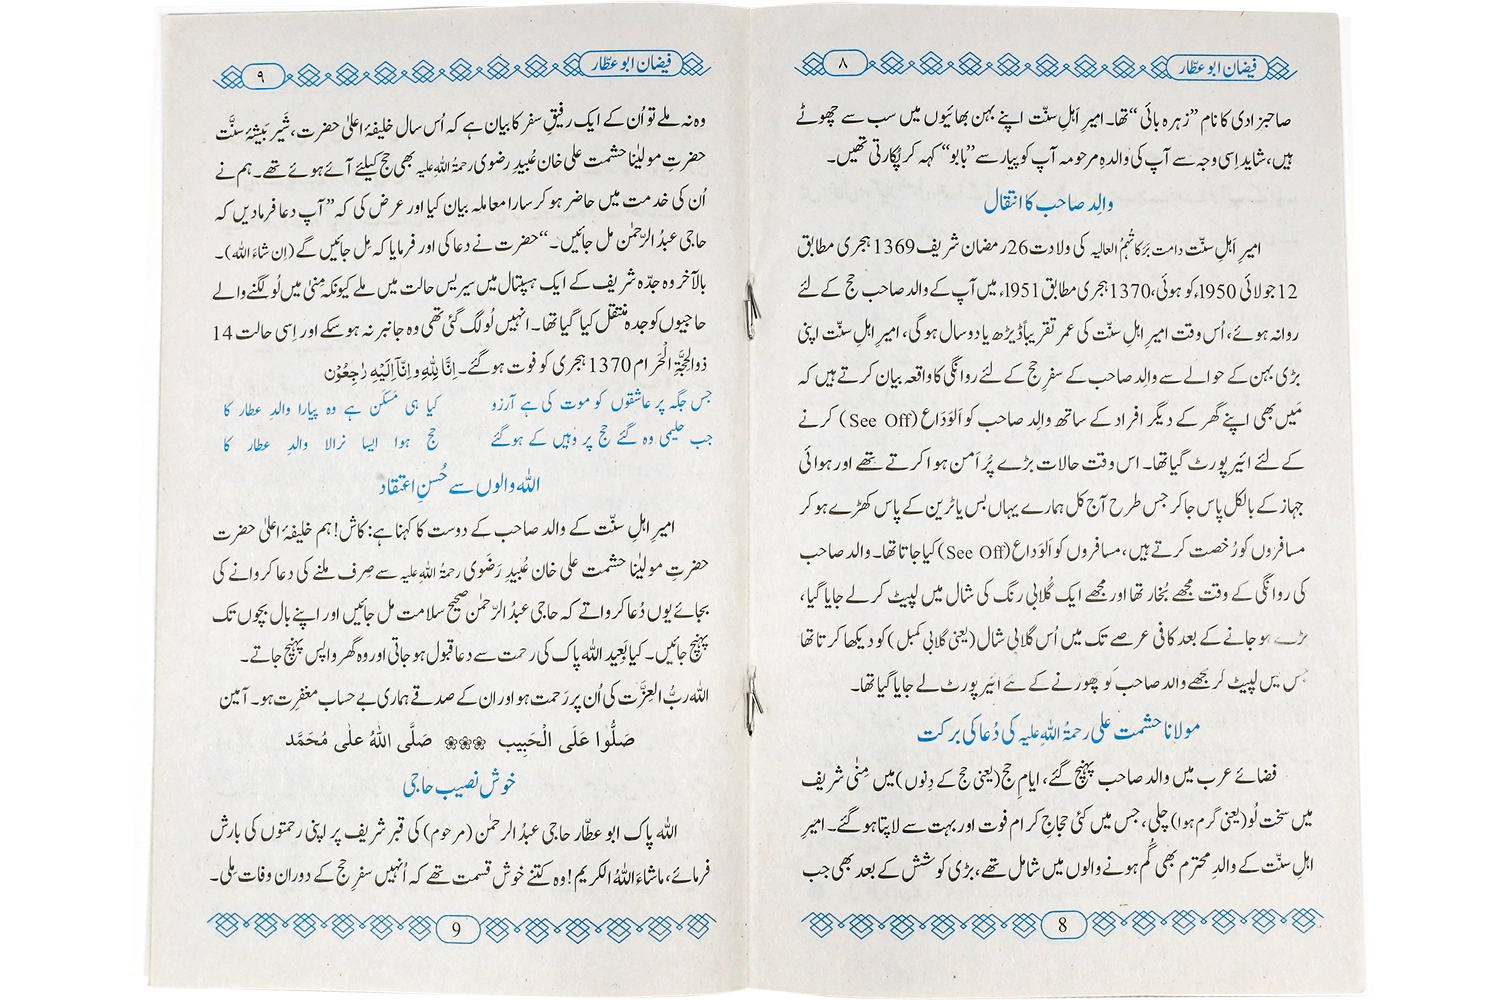 فیضان ابو عطّار
۸
صاحبزادی کا نام ”زہرہ بائی“ تھا۔ امیرِ اہلِ سنّت اپنے بہن بھائیوں میں سب سے چھوٹے
ہیں، شاید اِسی وجہ سے آپ کی والدہِ مرحومہ آپ کو پیار سے ”بابو“ کہہ کر پُکارتی تھیں۔
والِد صاحب کا انتقال
امیرِ اَہلِ سنّت دامت بَرَکاتُہمُ العالیہ کی ولادت 26 رمضان شریف 1369 ہجری مطابق
12 جولائی 1950ء کو ہوئی، 1370 ہجری مطابق 1951ء میں آپ کے والد صاحب حج کے لئے
روانہ ہوئے، اُس وقت امیرِ اہلِ سنّت کی عمر تقریباً ڈیڑھ یا دو سال ہوگی، امیرِ اہلِ سنّت اپنی
بڑی بہن کے حوالے سے والِد صاحب کے سفرِ حج کے لئے روانگی کا واقعہ بیان کرتے ہیں کہ
مَیں بھی اپنے گھر کے دیگر افراد کے ساتھ والِد صاحب کو اَلوَداع (See Off) کرنے
کے لئے ائیر پورٹ گیا تھا۔ اس وقت حالات بڑے پُر اَمن ہوا کرتے تھے اور ہوائی
جہاز کے بالکل پاس جاکر جس طرح آج کل ہمارے یہاں بس یا ٹرین کے پاس کھڑے ہو کر
مسافروں کو رُخصت کرتے ہیں، مسافروں کو اَلوَداع (See Off) کیا جاتا تھا۔ والد صاحب
کی روانگی کے وقت مجھے بُخار تھا اور مجھے ایک گُلابی رنگ کی شال میں لپیٹ کر لے جایا گیا،
بڑے ہو جانے کے بعد کافی عرصے تک میں اُس گلابی شال (یعنی گلابی کمبل) کو دیکھا کرتا تھا
جس میں لپیٹ کر مجھے والد صاحب کو چھوڑنے کے لئے ائیر پورٹ لے جایا گیا تھا۔
مولانا حشمت علی رحمۃُ اللہِ علیہ کی دُعا کی برکت
فضائے عرب میں والد صاحب پہنچ گئے، ایامِ حج (یعنی حج کے دِنوں) میں مِنٰی شریف
میں سخت لُو (یعنی گرم ہوا) چلی، جس میں کئی حجاجِ کرام فوت اور بہت سے لاپتا ہو گئے۔ امیرِ
اہلِ سنّت کے والدِ محترم بھی گُم ہونے والوں میں شامل تھے، بڑی کوشش کے بعد بھی جب
8
فیضان ابو عطّار
۹
وہ نہ ملے تو اُن کے ایک رفیقِ سفر کا بیان ہے کہ اُس سال خلیفۂ اعلیٰ حضرت، شَیرِ بَیشۂ سنّت
حضرتِ مولیٰنا حشمت علی خان عُبید رضوی رحمۃُ اللہِ علیہ بھی حج کیلئے آئے ہوئے تھے۔ ہم نے
اُن کی خدمت میں حاضر ہو کر سارا معاملہ بیان کیا اور عرض کی کہ ”آپ دعا فرما دیں کہ
حاجی عبدُ الرَّحمٰن مل جائیں۔“ حضرت نے دعا کی اور فرمایا کہ مِل جائیں گے (اِن شاءَ اللہ)۔
بالآخر وہ جدّہ شریف کے ایک ہسپتال میں سیریس حالت میں ملے کیونکہ مِنٰی میں لُو لگنے والے
حاجیوں کو جدہ منتقل کیا گیا تھا۔ انہیں لُو لگ گئی تھی وہ جانبر نہ ہوسکے اور اِسی حالت 14
ذوالحِجَّۃِ الْحَرام 1370 ہجری کو فوت ہوگئے۔ اِنَّا لِلّٰہِ وَ اِنَّاۤ اِلَیْہِ رٰجِعُوْن
جس جگہ پر عاشقوں کو موت کی ہے آرزو کیا ہی مَسکَن ہے وہ پیارا والدِ عطار کا
جب حلیمی وہ گئے حج پر وَہیں کے ہوگئے حج ہوا ایسا نرالا والدِ عطار کا
اللہ والوں سے حُسنِ اعتقاد
امیرِ اہلِ سنّت کے والد صاحب کے دوست کا کہنا ہے: کاش! ہم خلیفۂ اعلیٰ حضرت
حضرتِ مولیٰنا حشمت علی خان عُبید رَضَوی رحمۃُ اللہِ علیہ سے صِرف ملنے کی دعا کروانے کی
بجائے یوں دُعا کرواتے کہ حاجی عبدُ الرّحمٰن صحیح سلامت مل جائیں اور اپنے بال بچوں تک
پہنچ جائیں۔ کیا بعید اللہ پاک کی رحمت سے دعا قبول ہو جاتی اور وہ گھر واپس پہنچ جاتے۔
اللہ ربُّ العِزَّت کی اُن پر رَحمت ہو اور ان کے صدقے ہماری بے حساب مغفِرت ہو۔ آمین
صَلُّوا عَلَی الْحَبِیب ❀❀❀ صَلَّی اللہُ عَلٰی مُحَمَّد
خوش نصیب حاجی
اللہ پاک ابو عطّار حاجی عبدُ الرحمٰن (مرحوم) کی قبر شریف پر اپنی رحمتوں کی بارش
فرمائے، ماشاءَ اللہُ الکریم! وہ کتنے خوش قسمت تھے کہ اُنہیں سفرِ حج کے دوران وفات مِلی۔
9